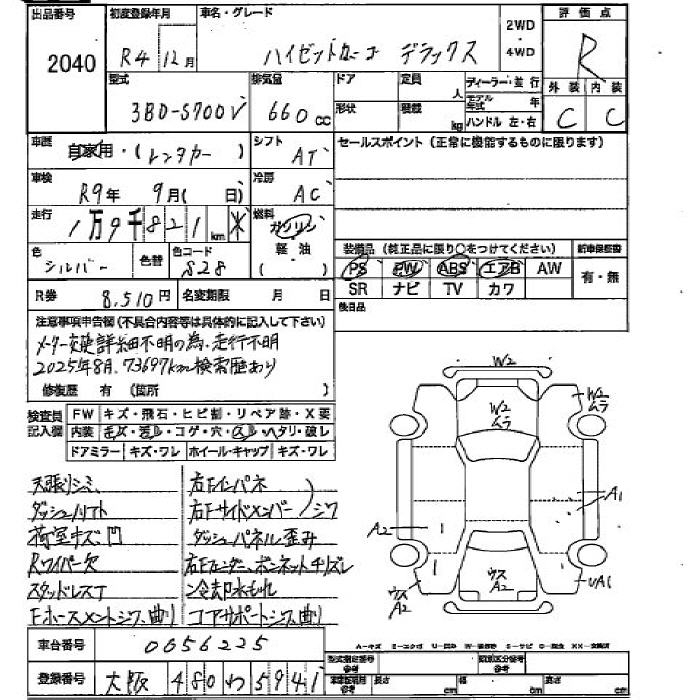 出品番号
2040
初度登録年月
R4 12月
車名・グレード
ハイゼットカーゴ デラックス
2WD
・
4WD
評価点
R
型式
3BD-S700V
排気量
660cc
ドア
形状
定員 人
積載 kg
ディーラー・並行
モデル年式 年
ハンドル 左・右
外装 内装
C C
車歴
自家用・(レンタカー)
シフト
AT
セールスポイント(正常に機能するものに限ります)
車検
R9年 9月(日)
冷房
AC
走行
1万9千821km ※
燃料
ガソリン
軽油
( )
色
シルバー
色替
色コード
S28
装備品(純正品に限り○をつけてください)
新車保証書
PS PW ABS エアB AW
SR ナビ TV カワ
有・無
R券 8,510円
名変期限 月 日
後日品
注意事項申告欄(不具合内容等は具体的に記入して下さい)
メーター交換詳細不明の為、走行不明
2025年8月、73697km検索歴あり
修復歴 有 (箇所 )
検査員記入欄
FW キズ・飛石・ヒビ割・リペア跡・X要
内装 キズ・汚レ・コゲ・穴・スレ・ヘタリ・破レ
ドアミラー キズ・ワレ ホイール・キャップ キズ・ワレ
天張りシミ
ダッシュリフト
荷室キズ凹
Rワイパー欠
スタッドレスT
Fホースメントシワ、曲り
右Fインパネ
右Fサイドメンバー
シワ
ダッシュパネル歪み
右Fフェンダー、ボンネットチリズレ
冷却水もれ
コアサポートシワ、曲り
W2
W2
ムラ
W2
ムラ
A1
A2
ウス
A2
ウス
A2
UA1
車台番号
0056225
A=キズ E=エクボ U=凹み W=波 S=サビ C=腐食 XX=交換済
登録番号
大阪 480 わ 5941
型式指定番号
参考
類別区分番号
参考
長さ cm
幅 cm
高さ cm